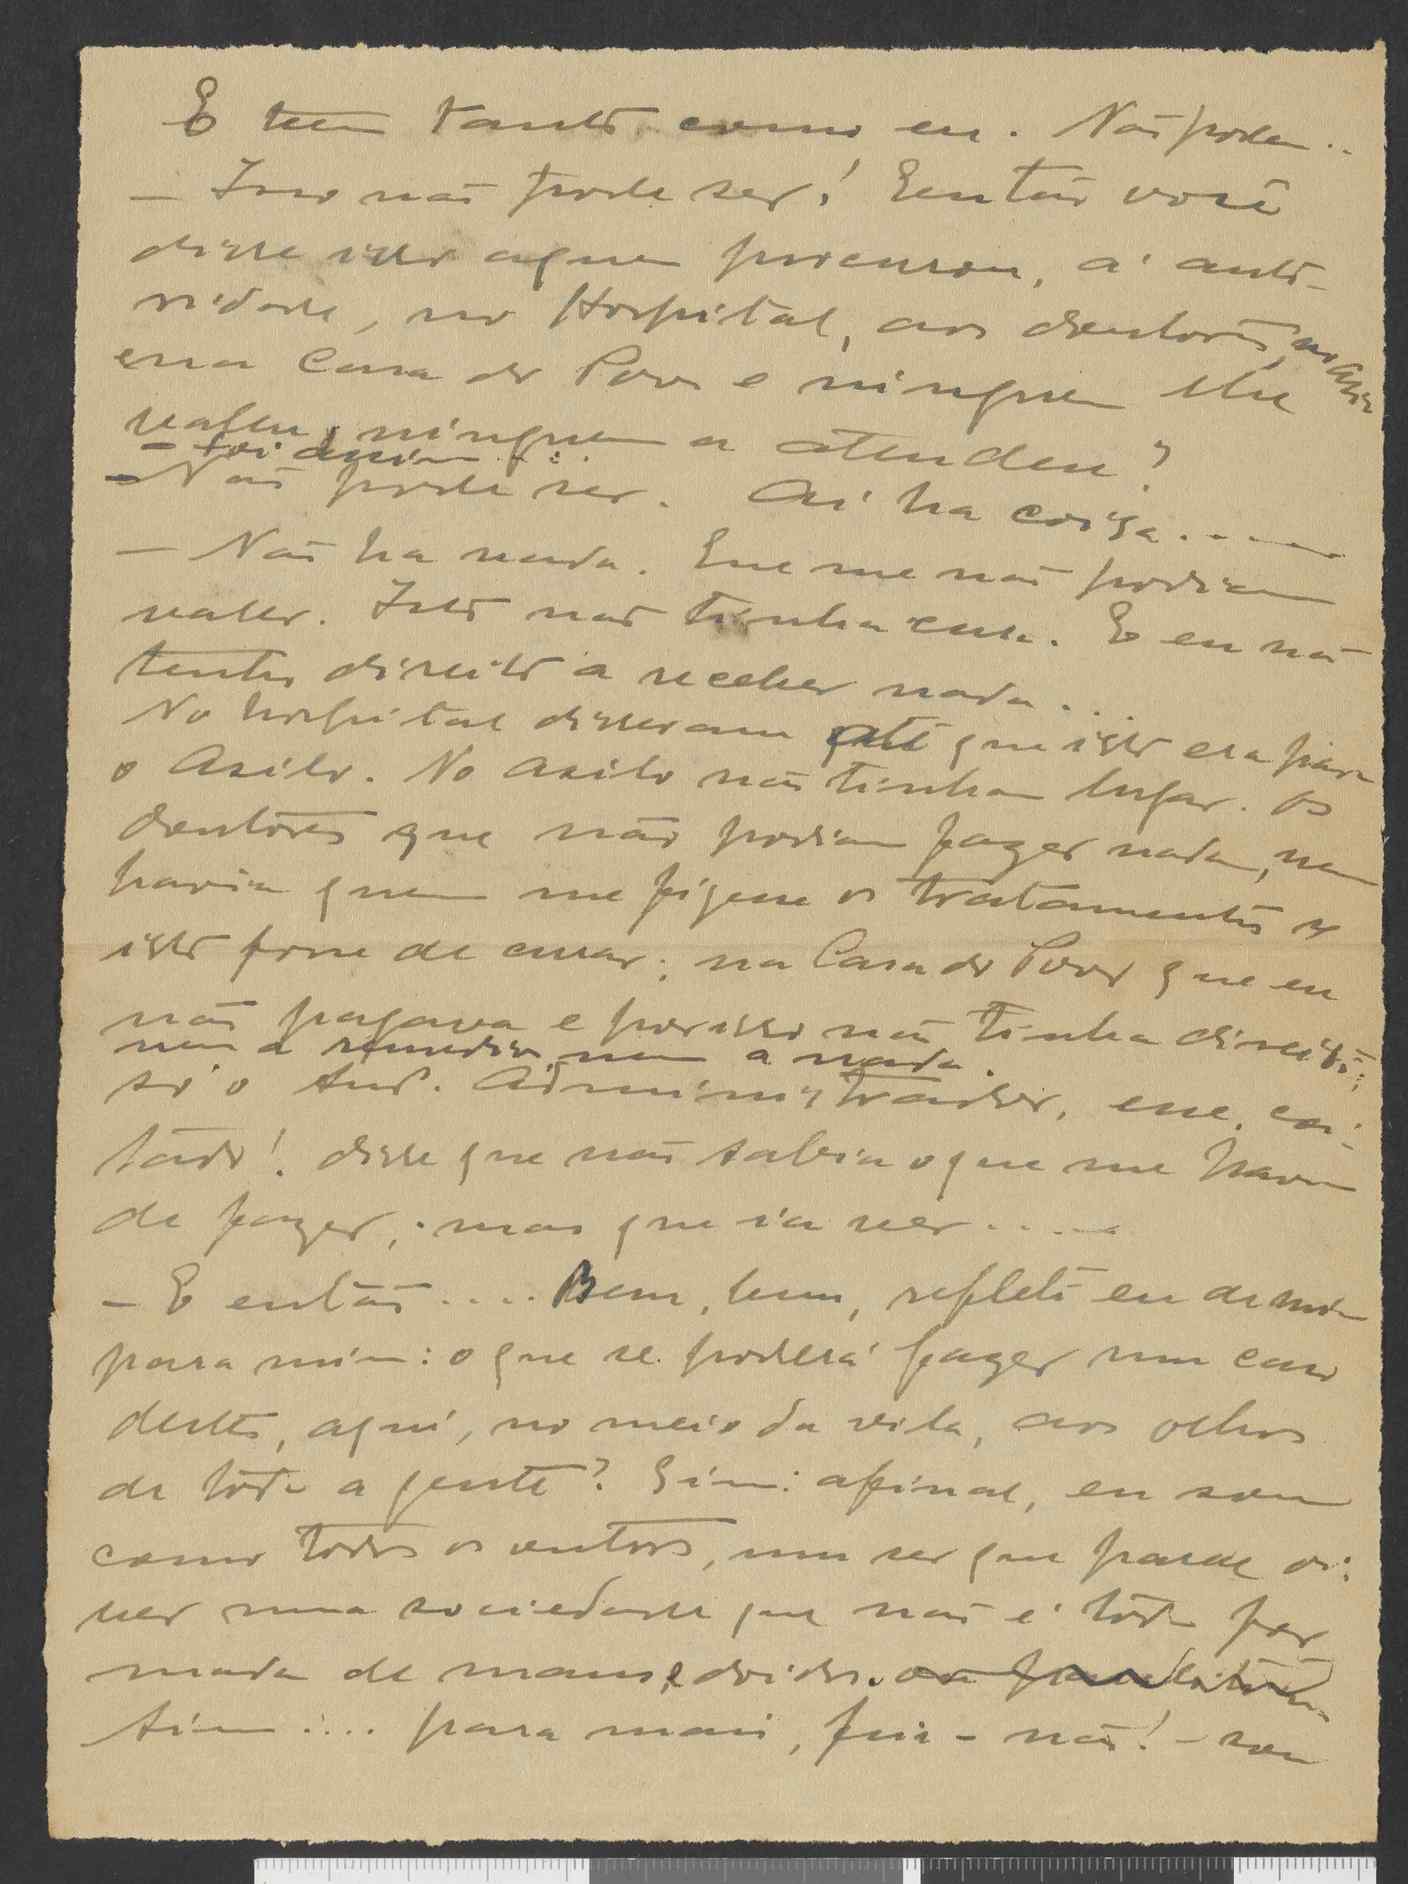 E teem tanto como eu. Não podem..
— Isso não pode ser! Então você
disse isso a quem procurou, á auto-
ridade, no Hospital, aos doutores, no Asilo
e na Casa do Povo e ninguem lhe
valeu, ninguem a atendeu?
— Foi assim...
— Não pode ser. Ai ha coisa.....
— Não ha nada. Que me não podiam
valer. Isto não tinha cura. E eu não
tenho direito a receber nada...
No hospital disseram até que isto era para
o Asilo. No Asilo não tinham lugar. Os
doutores que não podiam fazer nada, nem
havia quem me fizesse os tratamentos se
isto fosse de curar; na Casa do Povo que eu
não pagava e por isso não tinha direito;
nem a remedios nem a nada.
só o Snr. Administrador, esse, coi-
tado! disse que não sabia o que me havia
de fazer; mas que ia ver.....
— E então.... Bem, bem, refleti eu de mim
para mim: o que se poderá fazer num caso
destes, aqui, no meio da vila, aos olhos
de tôda a gente? Sim: afinal, eu sou
como todos os outros, um ser que parece vi-
ver numa sociedade que não é tôda for
mada de maus e doidos.
Sim.... para mais, fui - não! - sou